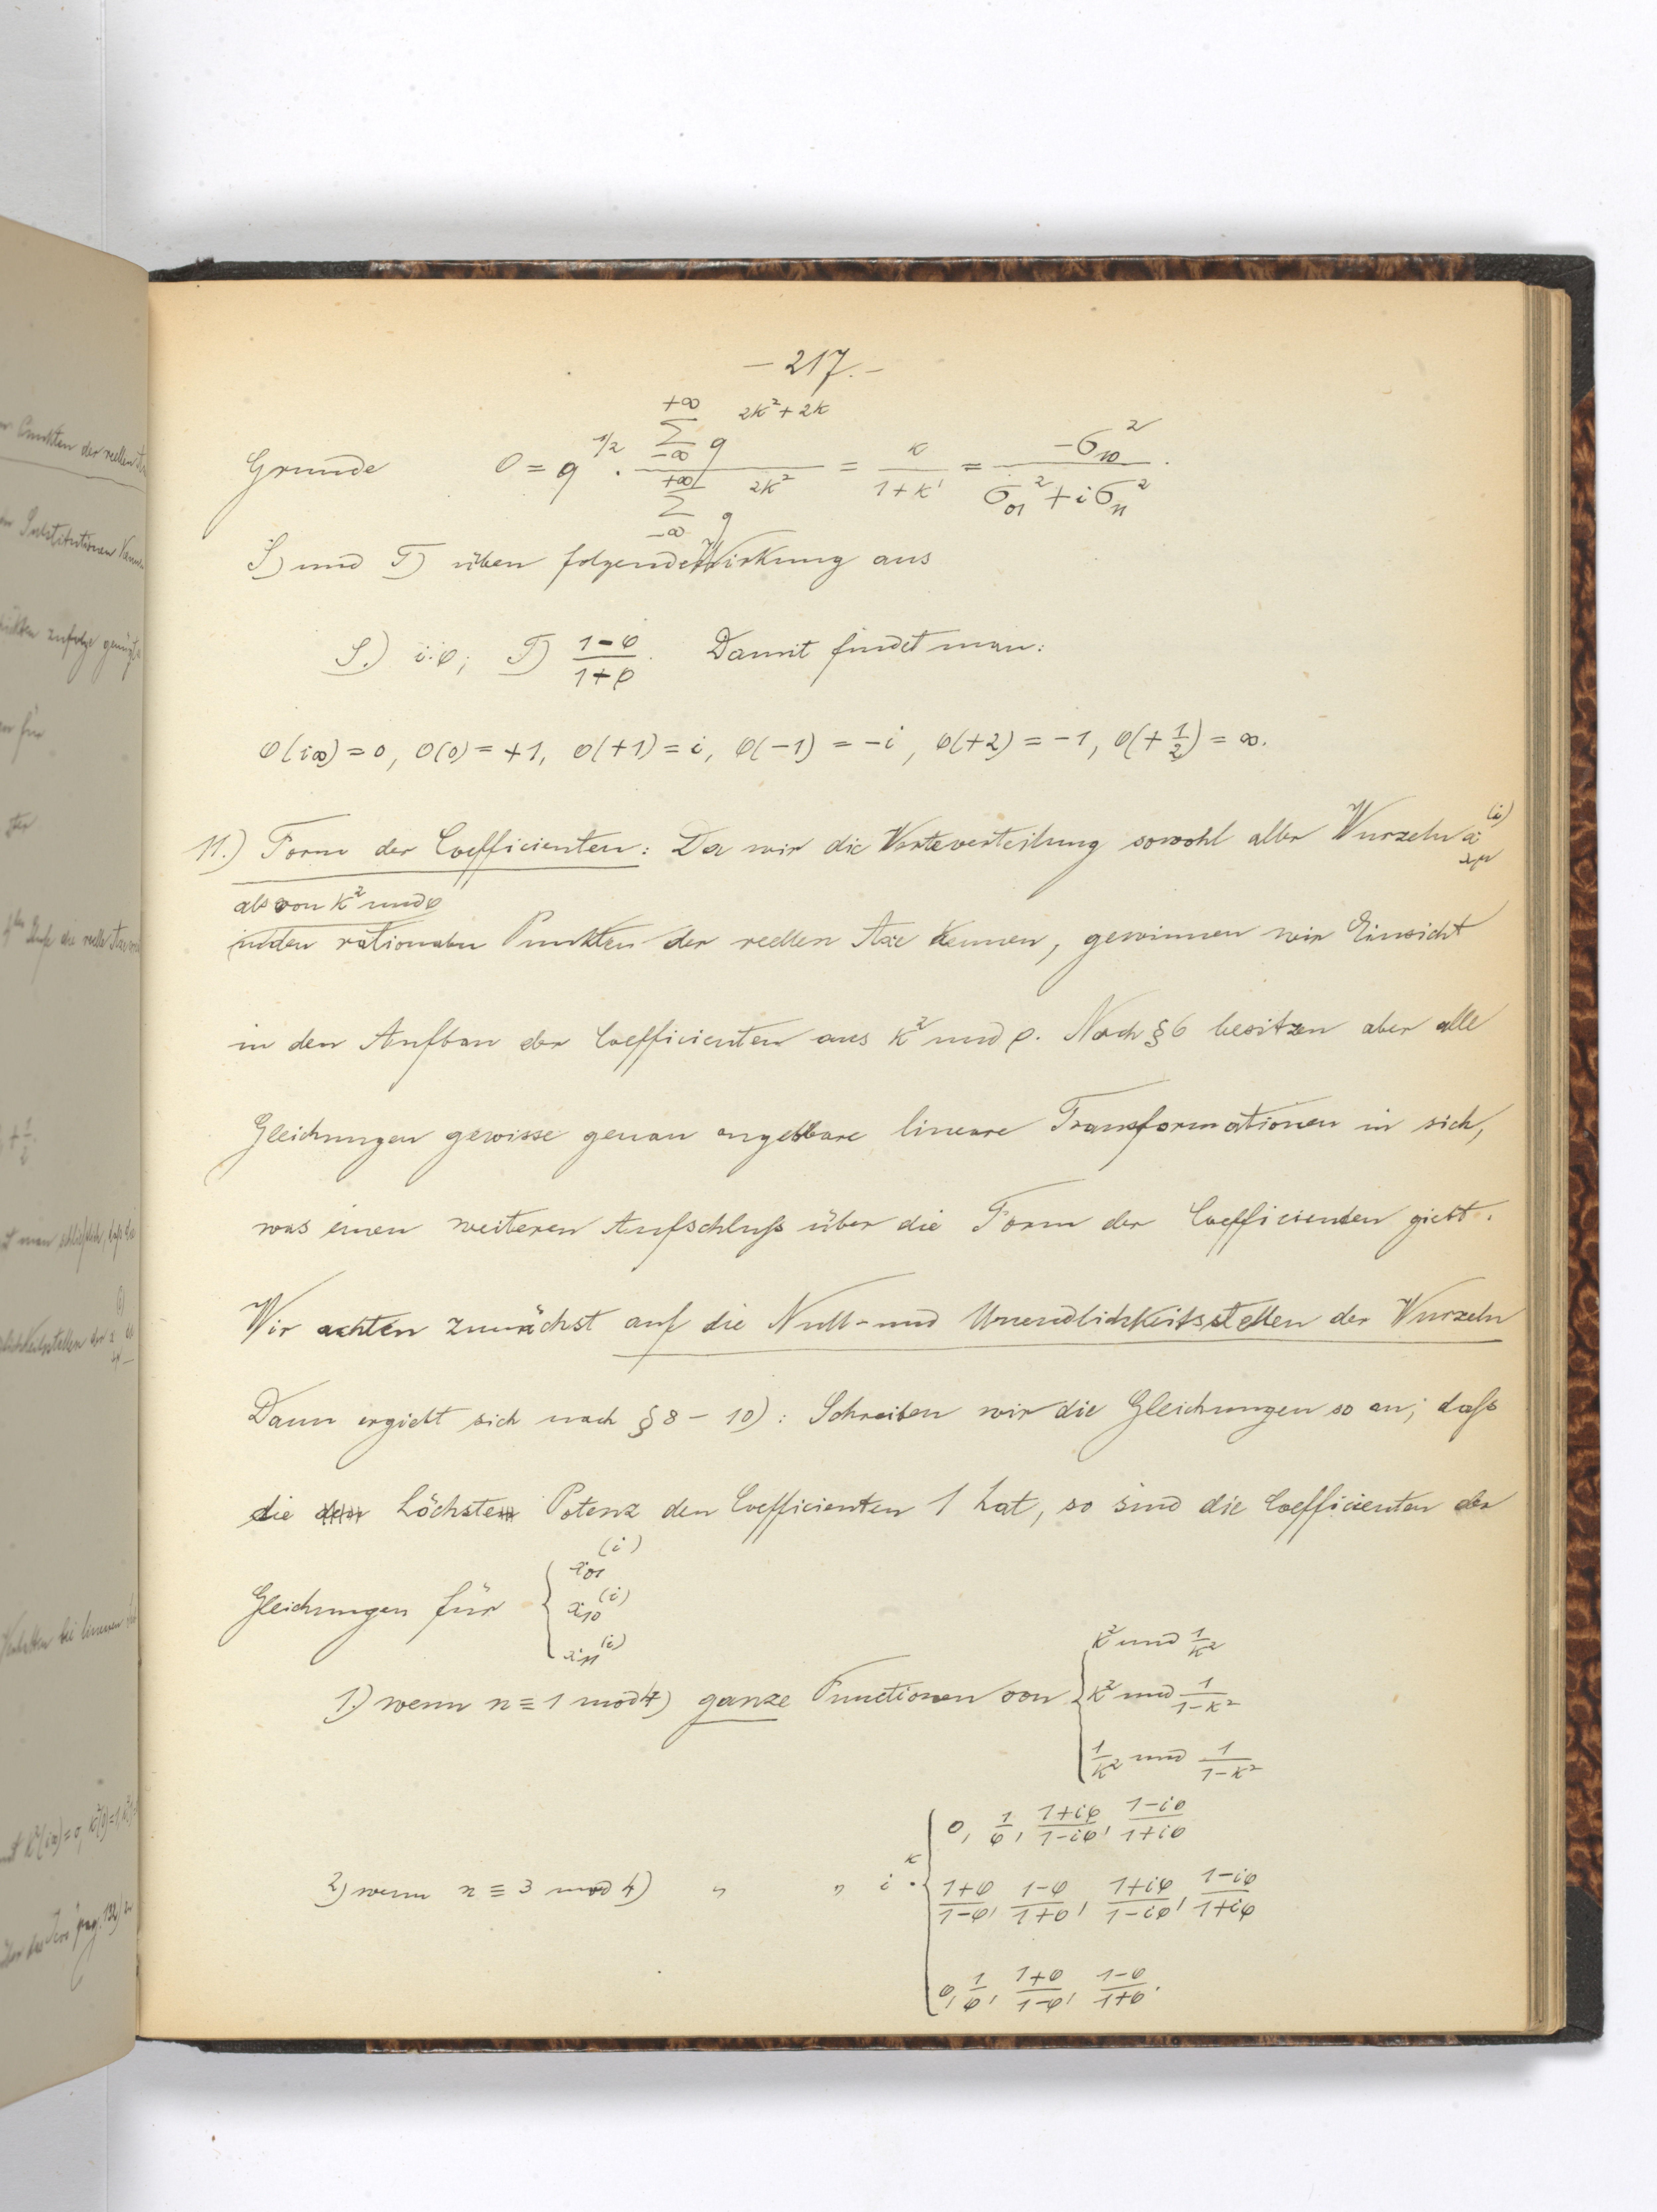 – 217. –
Grunde φ = q^{1/2} · \frac{\sum_{-∞}^{+∞} q^{2k²+2k}}{\sum_{-∞}^{+∞} q^{2k²}} = \frac{κ}{1+κ'} = \frac{-σ_{10}^2}{σ_{01}^2 + iσ_{11}^2}.
S) und T) üben folgende Wirkung aus
S.) i·φ; T) \frac{1-φ}{1+φ}. Damit findet man:
φ(i∞) = 0, φ(0) = +1, φ(+1) = i, φ(-1) = -i, φ(+2) = -1, φ(+\frac{1}{2}) = ∞.
11.) Form der Coefficienten: Da wir die Werteverteilung sowohl aller Wurzeln x_{λμ}^{(i)}
als von k² und φ
in den rationalen Punkten der reellen Axe kennen, gewinnen wir Einsicht
in den Aufbau der Coefficienten aus k² und φ. Nach § 6 besitzen aber alle
Gleichungen gewisse genau angebbare lineare Transformationen in sich,
was einen weiteren Aufschluß über die Form der Coefficienten giebt.
Wir achten zunächst auf die Null- und Unendlichkeitsstellen der Wurzeln
Dann ergiebt sich nach § 8 – 10): Schreiben wir die Gleichungen so an, daß
die höchste Potenz den Coefficienten 1 hat, so sind die Coefficienten der
Gleichungen für { x_{01}^{(i)} x_{10}^{(i)} x_{11}^{(i)}
1.) wenn n ≡ 1 mod 4) ganze Functionen von { k² und \frac{1}{k²} k² und \frac{1}{1-k²} \frac{1}{k²} und \frac{1}{1-k²}
2) wenn n ≡ 3 mod 4) „ „ i^κ · { φ, \frac{1}{φ}, \frac{1+iφ}{1-iφ}, \frac{1-iφ}{1+iφ}
\frac{1+φ}{1-φ}, \frac{1-φ}{1+φ}, \frac{1+iφ}{1-iφ}, \frac{1-iφ}{1+iφ}
φ, \frac{1}{φ}, \frac{1+φ}{1-φ}, \frac{1-φ}{1+φ}.